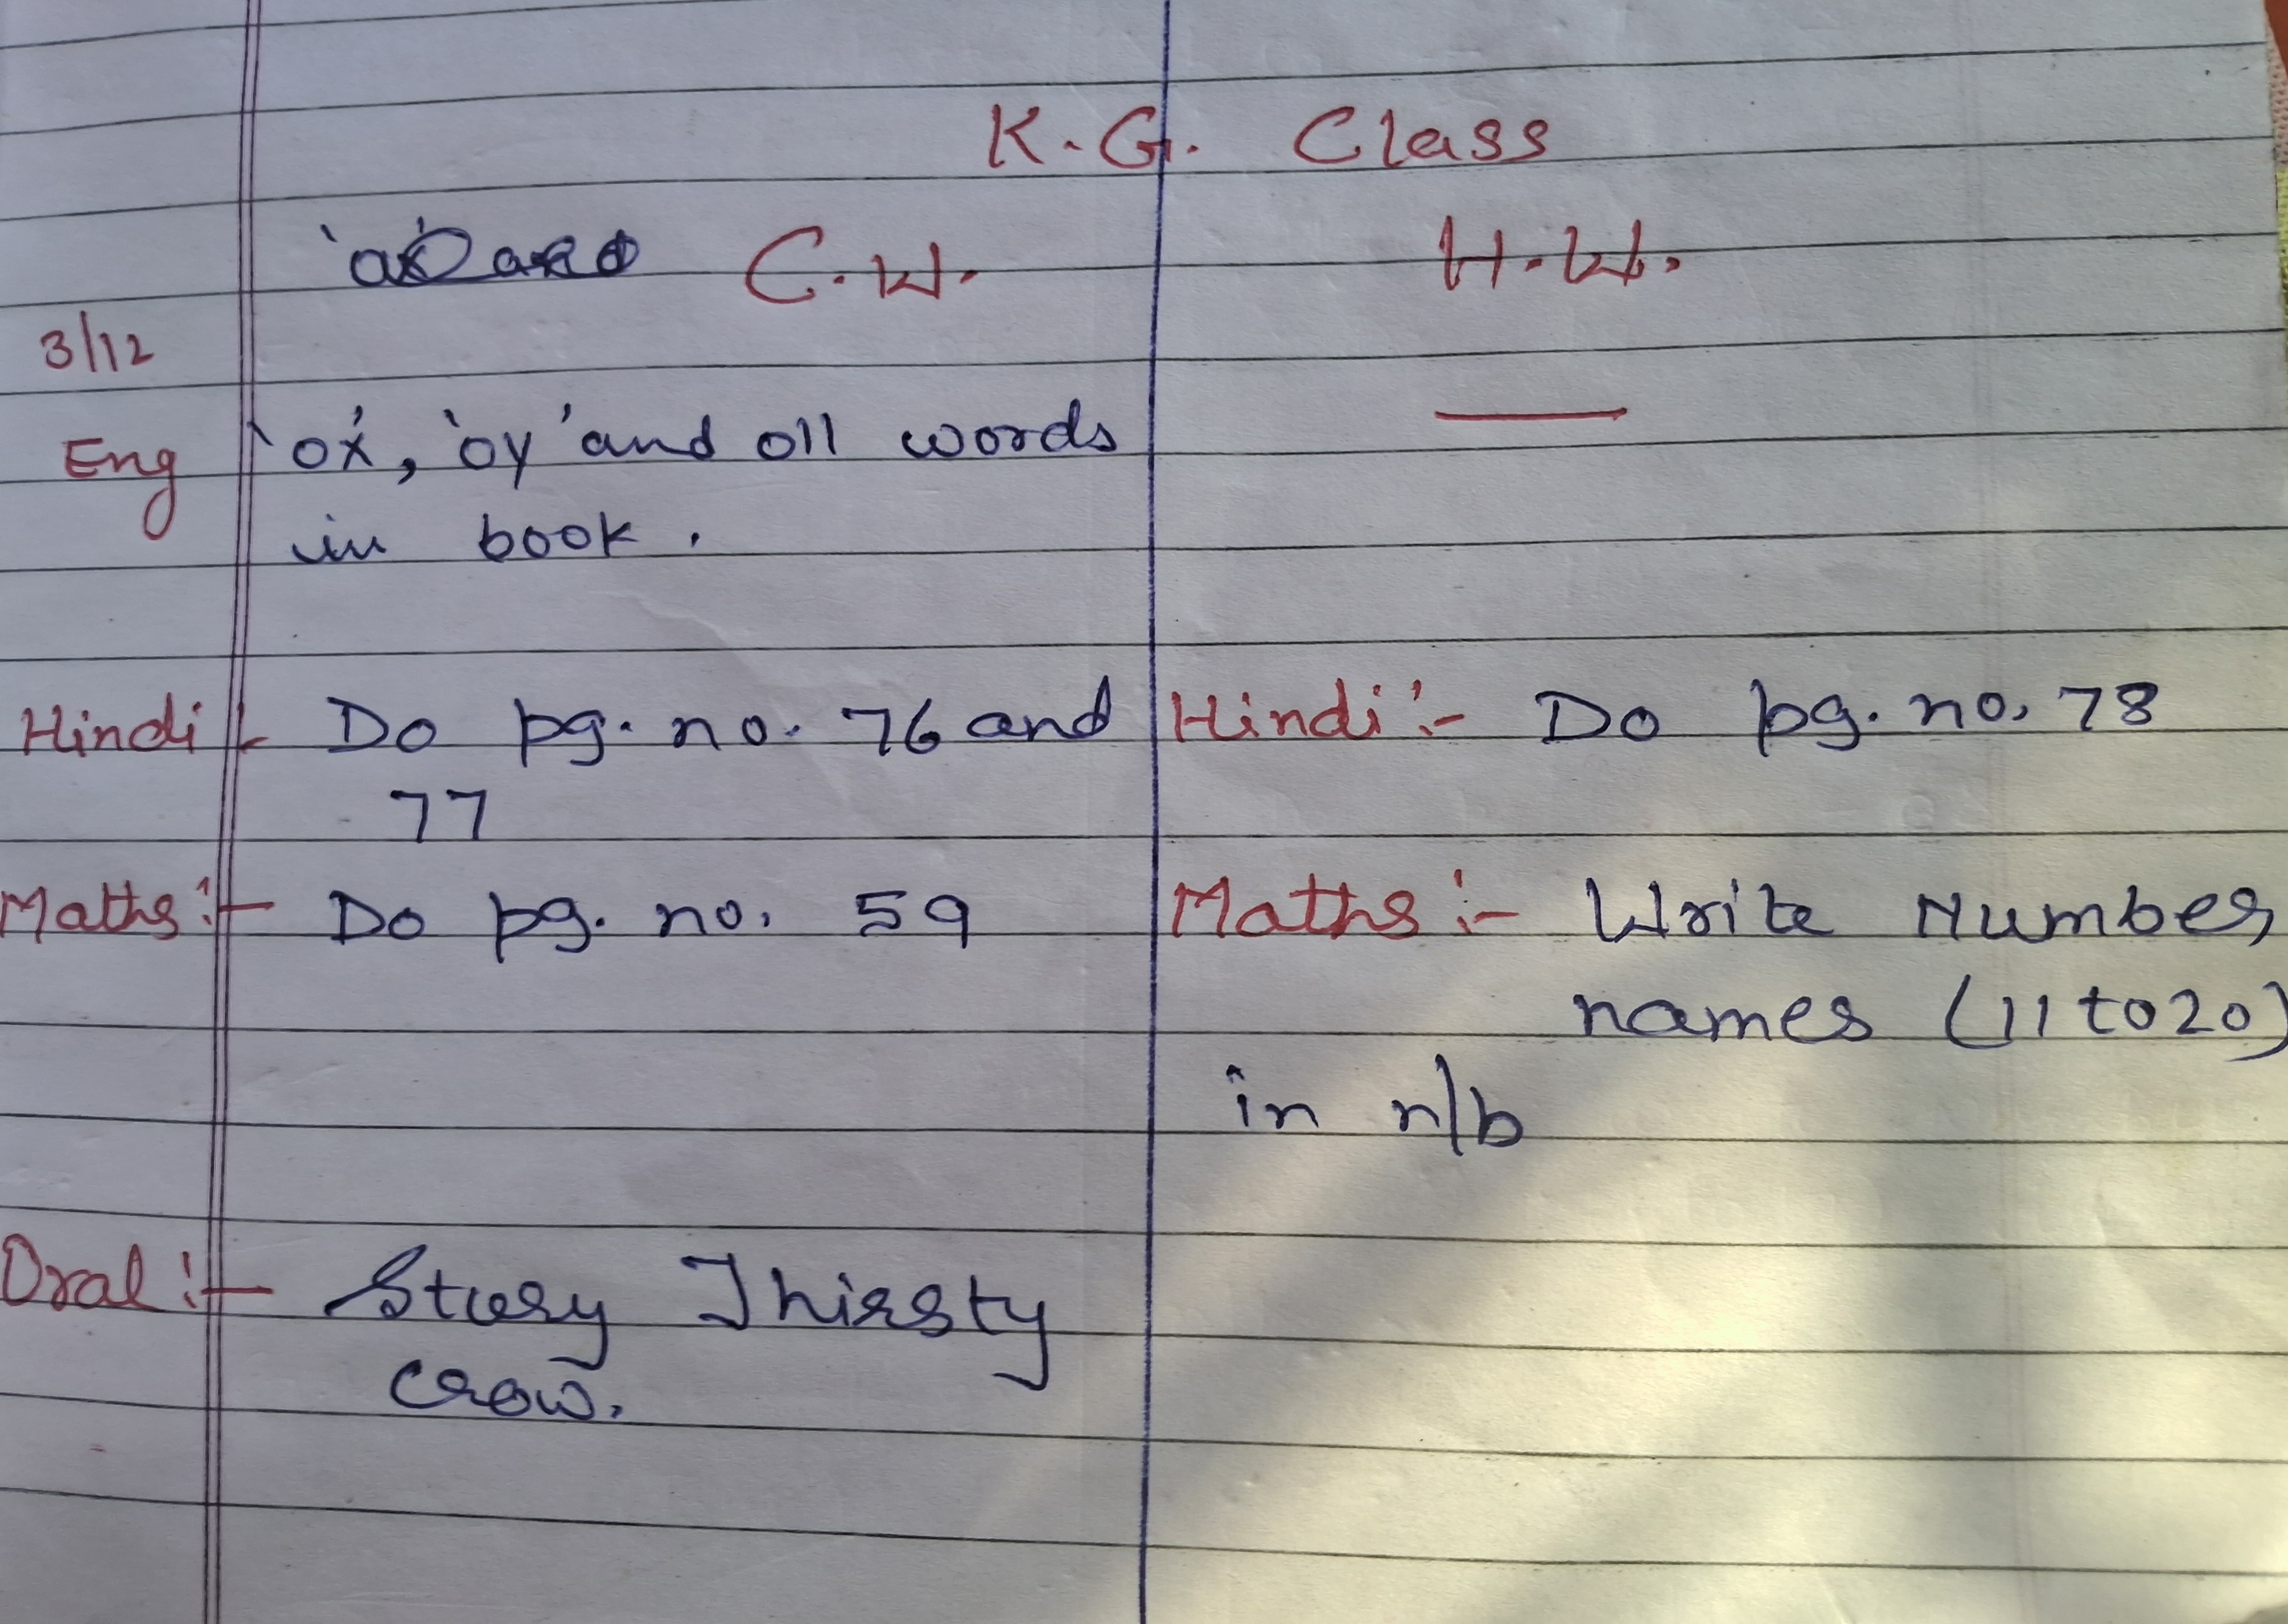 K.G. Class
C.W. H.W.
3/12
Eng 'ox', 'oy' and oll words
in book.
Hindi :- Do pg. no. 76 and Hindi :- Do pg. no. 78
77
Maths :- Do pg. no. 59 Maths :- Write Number
names (11 to 20)
in n/b
Oral :- Story Thirsty
Crow.